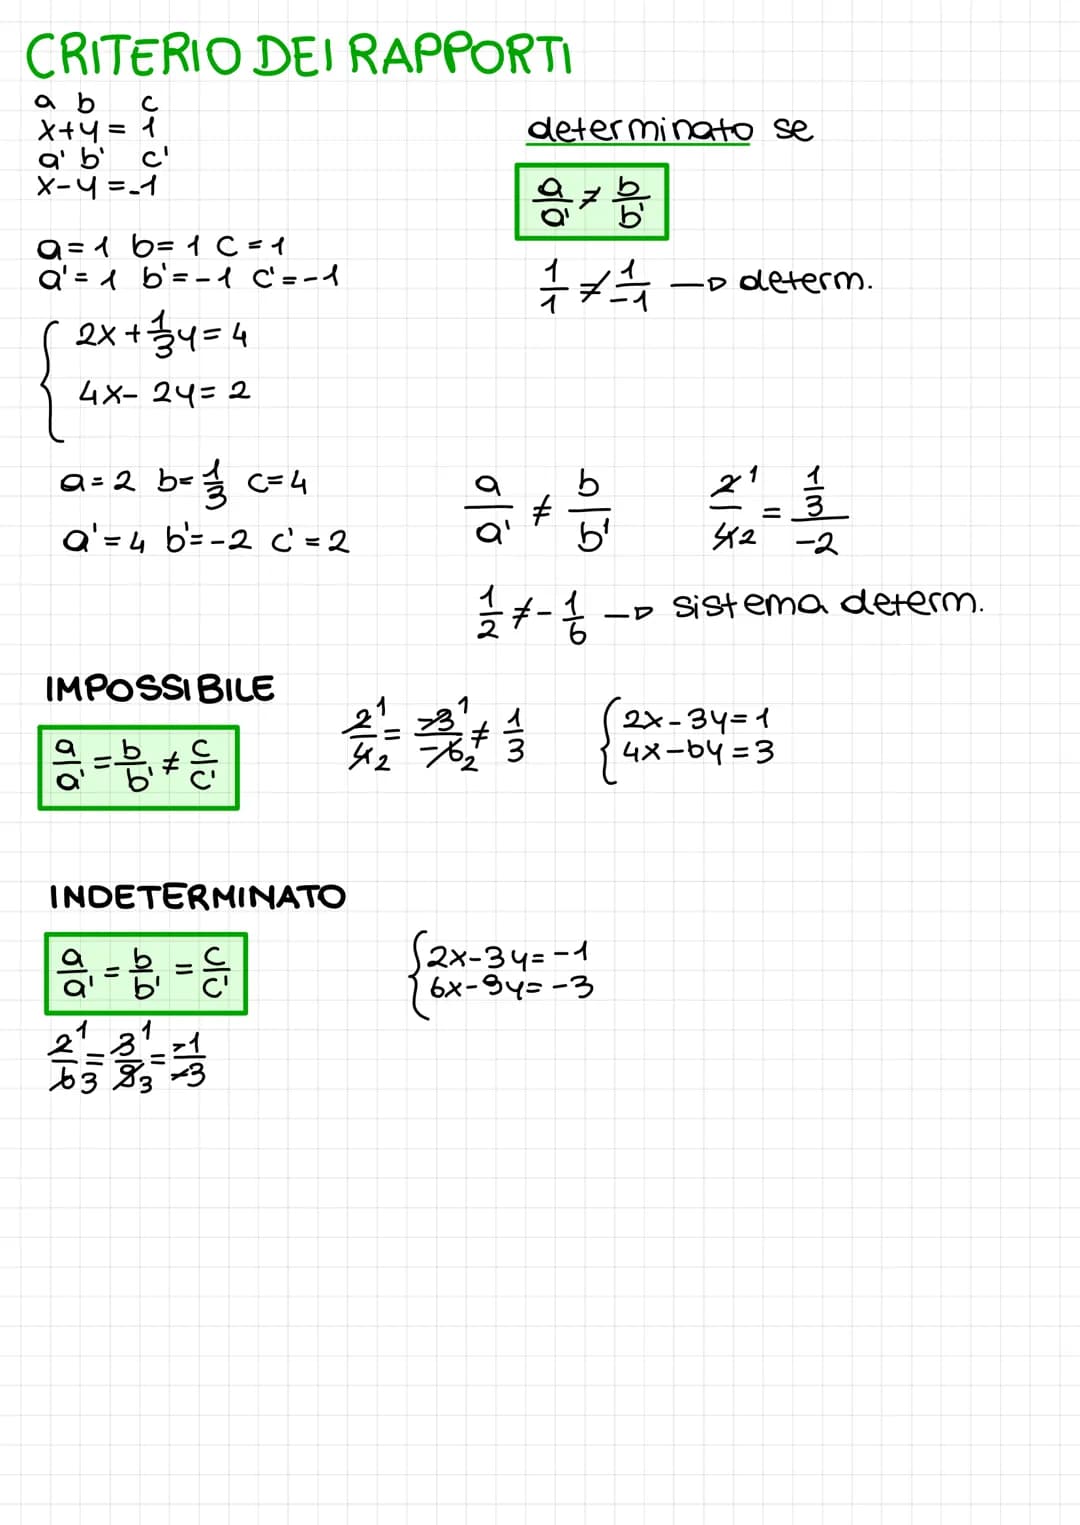 CRITERIO DEI RAPPORTI
a b c
x+y= 1
a' b' c'
x-y=-1
determinato se
a/a' ≠ b/b'
a=1 b=1 c=1
a'=1 b'=-1 c'=-1
1/1 ≠ 1/-1 → determ.
{ 2x+1/3y=4
4x-2y=2
a=2 b=1/3 c=4
a'=4 b'=-2 c'=2
a/a' ≠ b/b'
2 1/4 2 = 1/3/-2
1/2 ≠ -1/6 → sistema determ.
IMPOSSIBILE
a/a' = b/b' ≠ c/c'
2 1/4 2 = -3 1/-6 2 ≠ 1/3
{ 2x-3y=1
4x-6y=3
INDETERMINATO
a/a' = b/b' = c/c'
{ 2x-3y=-1
6x-9y=-3
2 1/6 3 = 3 1/9 3 = -1/-3